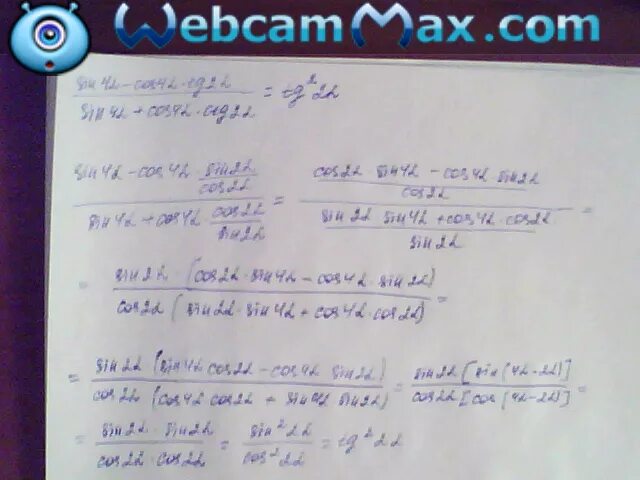 WebcamMax.com
(sin4α - cos4α · tg2α) / (sin4α + cos4α · ctg2α) = tg²2α
(sin4α - cos4α · sin2α/cos2α) / (sin4α + cos4α · cos2α/sin2α) = ((cos2α · sin4α - cos4α · sin2α) / cos2α) / ((sin2α · sin4α + cos4α · cos2α) / sin2α) =
= (sin2α · (cos2α · sin4α - cos4α · sin2α)) / (cos2α (sin2α · sin4α + cos4α · cos2α)) =
= (sin2α (sin4α cos2α - cos4α sin2α)) / (cos2α (cos4α cos2α + sin4α sin2α)) = (sin2α [sin(4α-2α)]) / (cos2α [cos(4α-2α)]) =
= (sin2α · sin2α) / (cos2α · cos2α) = sin²2α / cos²2α = tg²2α